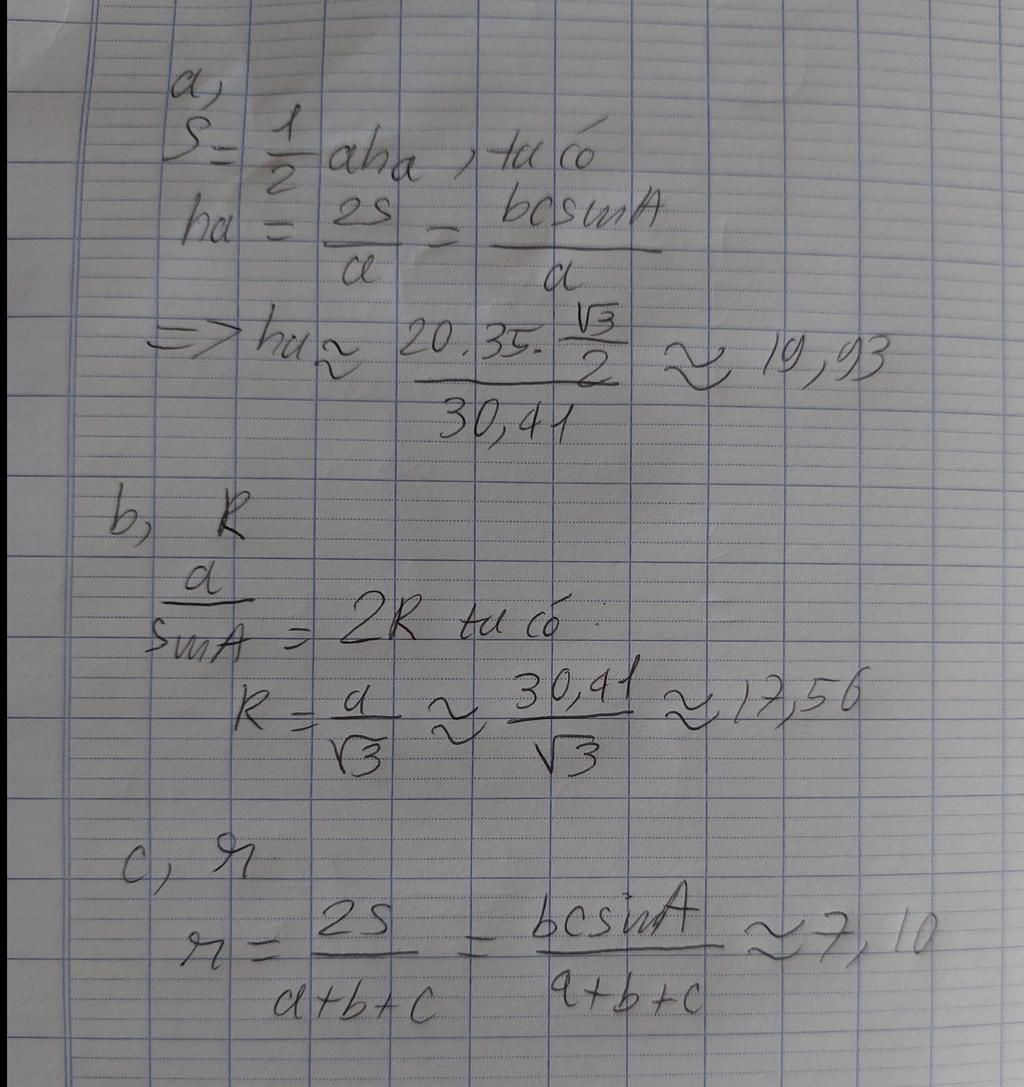 a,
S = 1/2 aha, ta có
ha = 2S/a = bcsinA/a
=> ha ≈ (20.35.√3/2)/30,41 ≈ 19,93
b, R
a/sinA = 2R ta có
R = a/√3 ≈ 30,41/√3 ≈ 17,56
c, r
r = 2S/(a+b+c) = bcsinA/(a+b+c) ≈ 7,10